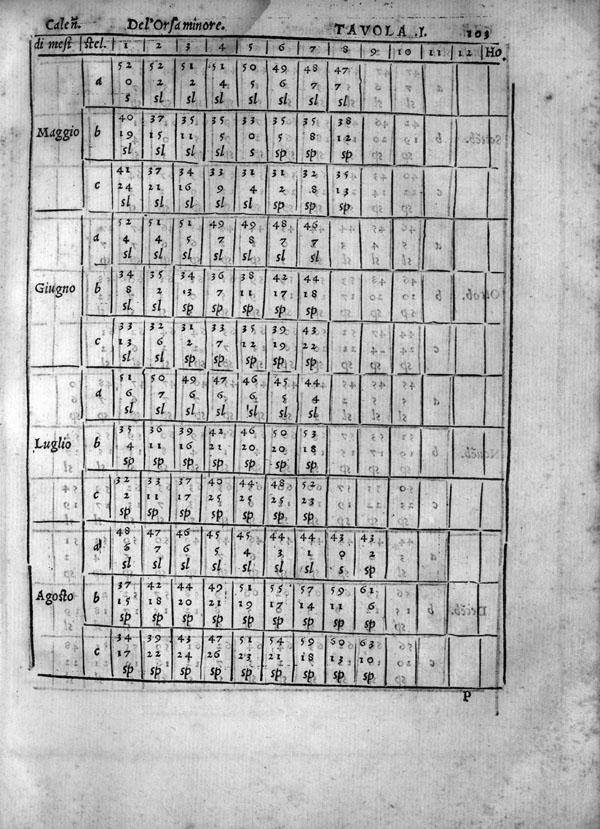 Caleñ. Del'Orsa minore. TAVOLA .I. 103
di mesi stel. 1 2 3 4 5 6 7 8 9 10 11 12 Ho
52 52 51 51 50 49 48 47
a 0 2 2 4 5 6 7 7
s sl sl sl sl sl sl sl
40 37 35 35 33 35 35 38
Maggio b 19 15 11 5 0 5 8 12
sl sl sl sl s sp sp sp
41 37 34 33 31 31 32 35
c 24 21 16 9 4 2 8 13
sl sl sl sl sl sp sp sp
52 51 51 49 49 48 46
a 4 4 5 7 8 7 7
sl sl sl sl sl sl sl
34 35 34 36 38 42 44
Giugno b 8 2 13 7 11 17 18
sl sl sp sp sp sp sp
33 32 31 33 35 39 43
c 13 6 2 7 12 19 22
sl sl sp sp sp sp sp
51 50 49 47 46 45 44
a 6 7 6 6 6 5 4
sl sl sl sl sl sl sl
35 36 39 42 46 50 53
Luglio b 4 11 16 21 20 20 18
sp sp sp sp sp sp sp
32 33 37 40 44 48 52
c 2 11 17 25 25 25 23
sp sp sp sp sp sp sp
48 47 46 45 45 44 44 43 43
a 6 7 6 5 4 3 1 0 2
sl sl sl sl sl sl sl s sp
37 42 44 49 51 55 57 59 61
Agosto b 15 18 20 21 19 17 14 11 6
sp sp sp sp sp sp sp sp sp
34 39 43 47 51 54 59 60 63
c 17 22 24 26 23 21 18 13 10
sp sp sp sp sp sp sp sp sp
P